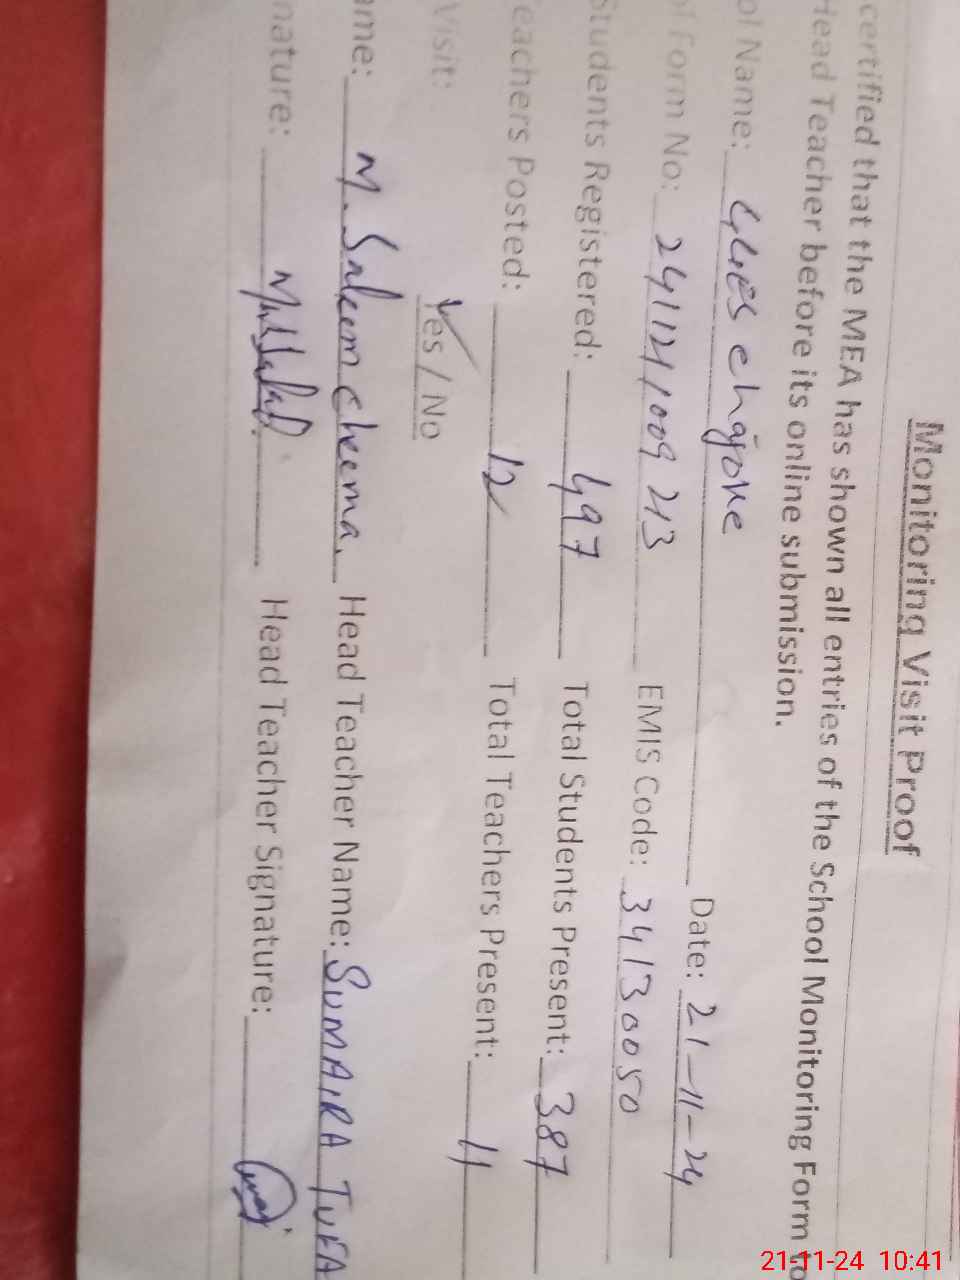 Monitoring Visit Proof
certified that the MEA has shown all entries of the School Monitoring Form to
Head Teacher before its online submission.
ol Name: GGES chajoke Date: 21-11-24
ol Form No: 241121009213 EMIS Code: 34130050
Students Registered: 497 Total Students Present: 387
eachers Posted: 12 Total Teachers Present: 11
Visit: Yes / No
ame: M. Saleem cheema. Head Teacher Name: SUMAIRA TUFA
nature: Head Teacher Signature:
21-11-24 10:41